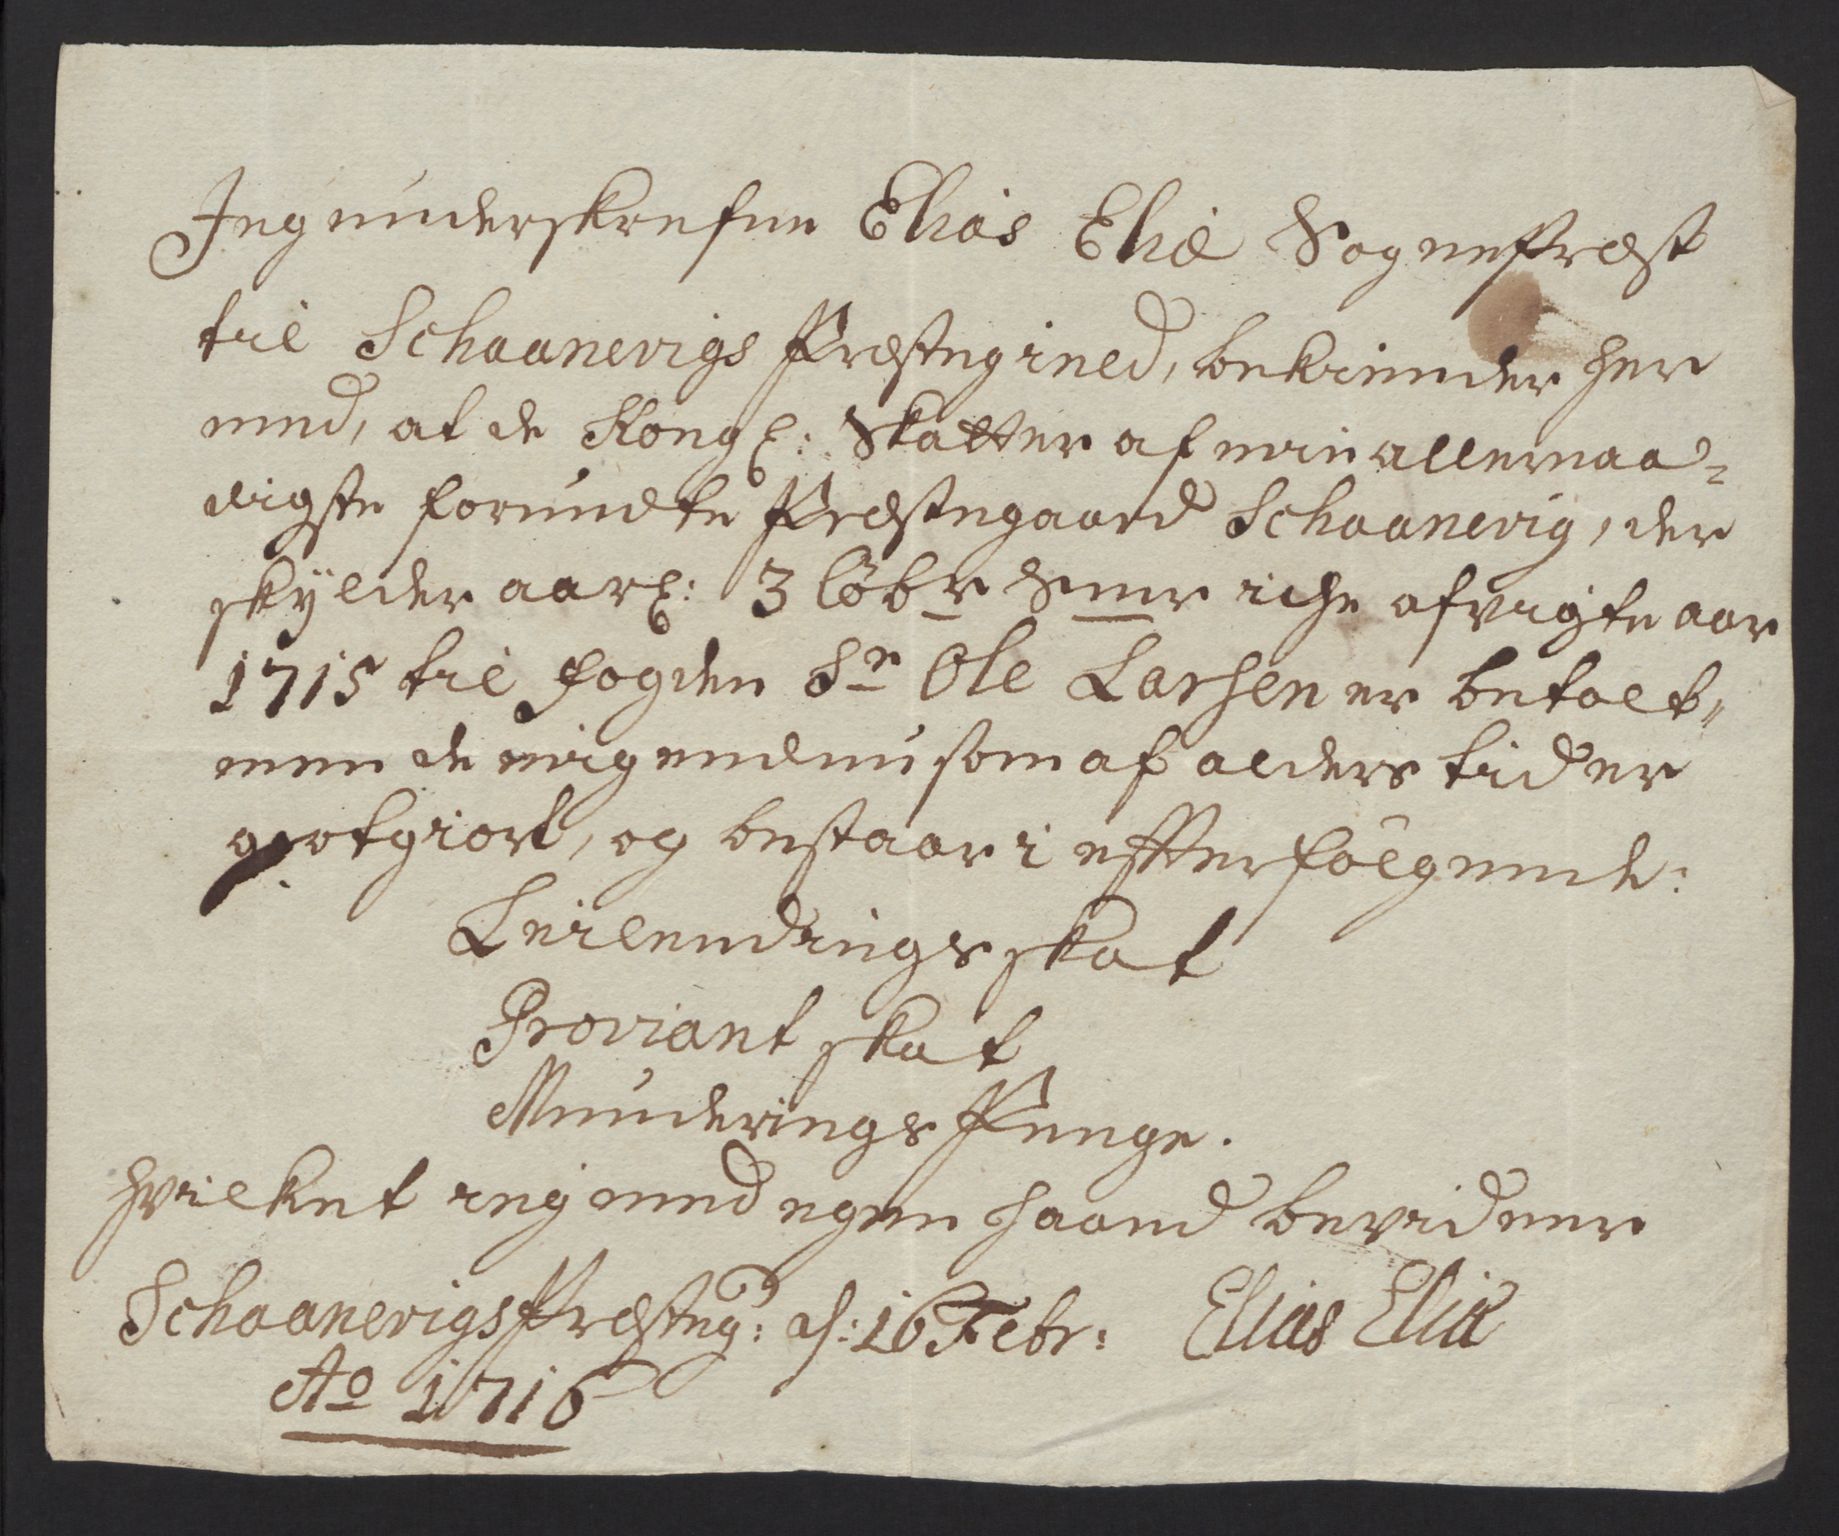 Jeg underskrefne Elias Eliæ Sognepræst
til Schaanevigs Præstegield, bekiender her
med, at de Kongl: Skatter af min allernaa-
digste forundte Præstegaard Schaanevig, der
skÿlder aarl: 3 löbr Smr iche afvigte aar
1715 til fogden Sr Ole Larsen er betalt,
men de mig endnu som af alders tid er
gotgiort, og bestaar i effterfölgende:
Leilendingsskat
Proviant skat
Munderings Penge.
hvilket ieg med egen haand bevidner
Schaanevigs Præsteg: d: 16 Febr: Elias Eliæ
Ao 1716